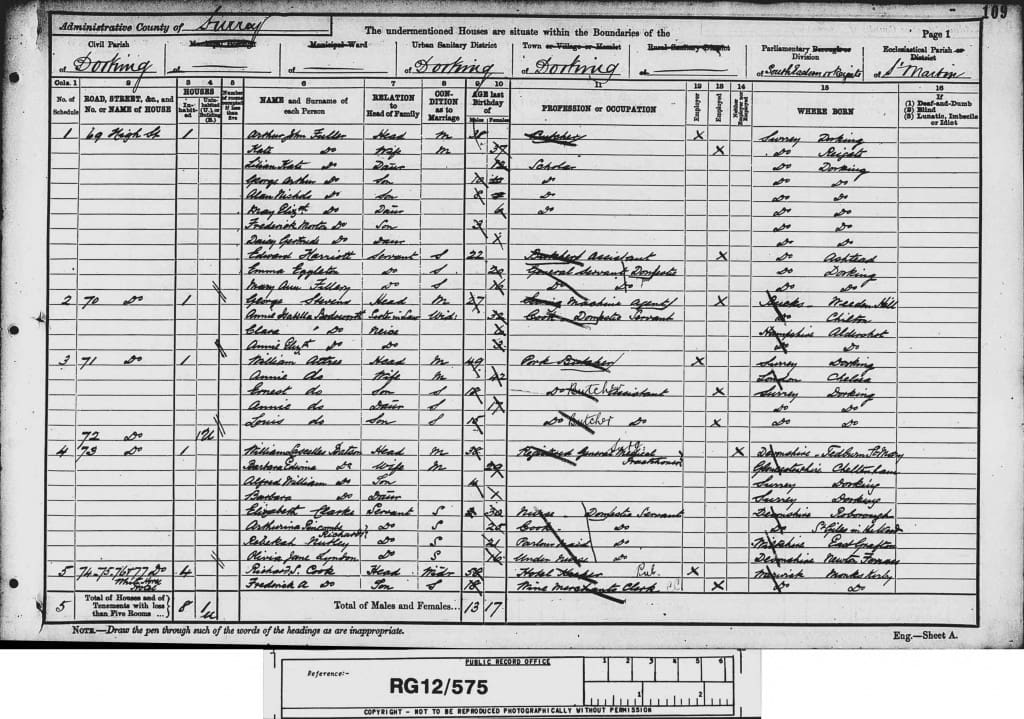 109
Administrative County of Surrey
The undermentioned Houses are situate within the Boundaries of the
Page 1
Civil Parish of Dorking
Municipal Borough of
Municipal Ward of
Urban Sanitary District of Dorking
Town or Village or Hamlet of Dorking
Rural Sanitary District of
Parliamentary Borough or Division of
Ecclesiastical Parish or District of St Martin
Cols. 1 2 3 4 5 6 7 8 9 10 11 12 13 14 15 16
No. of Schedule
ROAD, STREET, &c., and No. or NAME of HOUSE
HOUSES
Inhabited
Uninhabited (U.) or Building (B.)
Number of rooms occupied if less than five
NAME and Surname of each Person
RELATION to Head of Family
CONDITION as to Marriage
AGE last Birthday of
Males
Females
PROFESSION or OCCUPATION
Employer
Employed
Neither Employer nor Employed
WHERE BORN
If (1) Deaf-and-Dumb (2) Blind (3) Lunatic, Imbecile or Idiot
1 69 High St 1 Arthur John Fuller Head M 38 Butcher X Surrey Dorking
Kate Do Wife M 37 X Do Reigate
Lilian Kate Do Daur 12 Scholar Do Dorking
George Arthur Do Son 10 Do Do Do
Alan Nichols Do Son 8 Do Do Do
May Elizth Do Daur 6 Do Do Do
Frederick Morton Do Son 3 Do Do
Daisy Gertrude Do Daur Do Do
Edward Harriott Servant S 22 Butchers Assistant X Do Ashtead
Emma Eggleton Do S 20 General Servant Domestic Do Dorking
Mary Ann Fillery Do S 16 Do Do Do Do
2 70 Do 1 George Stevens Head M 27 Machine Agent X Bucks Weedon Hill
Annie Isabella Wid 32 Cook Domestic Servant Do Chilton
Clara " Do Neice 6 Hampshire Aldershot
Annie Elizth Do Do 3 Do Do
3 71 Do 1 William Attree Head M 49 Pork Butcher X Surrey Dorking
Annie do Wife M 42 London Chelsea
Ernest do Son S 18 Do Butcher Assistant X Surrey Dorking
Annie do Daur S 17 Do Do
Louis do Son S 15 Do Butcher Do X Do Do
72 Do 1U
4 73 Do 1 William Head M 38 Registered General Medical Practitioner X Devonshire Tedburn St Mary
Barbara Edwina Do Wife M 29 Gloucestershire Cheltenham
Alfred William Do Son 4 Surrey Dorking
Barbara Do Daur Surrey Dorking
Elizabeth Clarke Servant S 30 Nurse Domestic Servant Devonshire Roborough
Do S 25 Cook Do Do St Giles in the Wood
Rebekah Do S 21 Parlour Maid Do Wiltshire East Grafton
Olivia Jane London Do S 16 Under Nurse Do Devonshire
5 74-75-76 & 77 Do White Horse Hotel 4 Richard S. Cook Head Widr 58 Hotel Keeper Pub. X Warwick Monks Kirby
Frederick A. Do Son S 18 Wine Merchants Clerk X Do Do
5 Total of Houses and of Tenements with less than Five Rooms ... 8 1u Total of Males and Females... 13 17
NOTE.—Draw the pen through such of the words of the headings as are inappropriate.
Eng.—Sheet A.
PUBLIC RECORD OFFICE
Reference:-
RG12/575
1 2 3 4 5 6
1 2
COPYRIGHT - NOT TO BE REPRODUCED PHOTOGRAPHICALLY WITHOUT PERMISSION